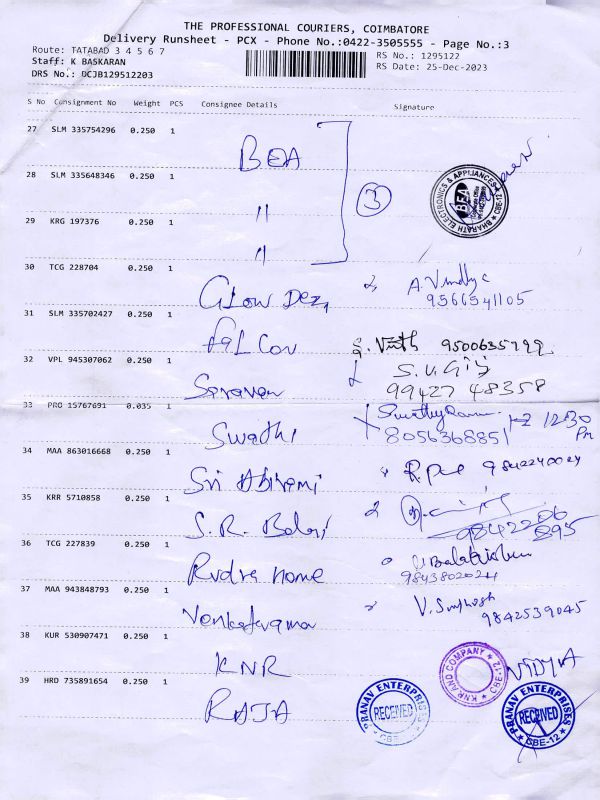 THE PROFESSIONAL COURIERS, COIMBATORE
Delivery Runsheet - PCX - Phone No.:0422-3505555 - Page No.:3
Route: TATABAD 3 4 5 6 7
RS No.: 1295122
Staff: K BASKARAN
RS Date: 25-Dec-2023
DRS No.: DCJB129512203
S No Consignment No Weight PCS Consignee Details Signature
27 SLM 335754296 0.250 1 BEA
28 SLM 335648346 0.250 1 "
3
BHARATH ELECTRONICS & APPLIANCES CBE-12
BEA
29 KRG 197376 0.250 1 "
30 TCG 228704 0.250 1 Glow Dez A. Vindhya
9566541105
31 SLM 335702427 0.250 1 Falcon 9500635799
32 VPL 945307062 0.250 1 Saravan S.V. Giri
99427 48358
33 PRO 15767691 0.035 1 Swathi 12.30 Pm
8056368851
34 MAA 863016668 0.250 1 Sri Abirami 9842240024
35 KRR 5710858 0.250 1 S.R. Balaji
9842206895
36 TCG 227839 0.250 1 Rudra Home Balakrishnan
9843802024
37 MAA 943848793 0.250 1 Venkatrama V. Santhosh
9842539045
38 KUR 530907471 0.250 1 KNR
KNR AND COMPANY CBE-12
VIDYA
39 HRD 735891654 0.250 1 RAJA
PRANAV ENTERPRISES RECEIVED CBE-12
PRANAV ENTERPRISES RECEIVED CBE-12